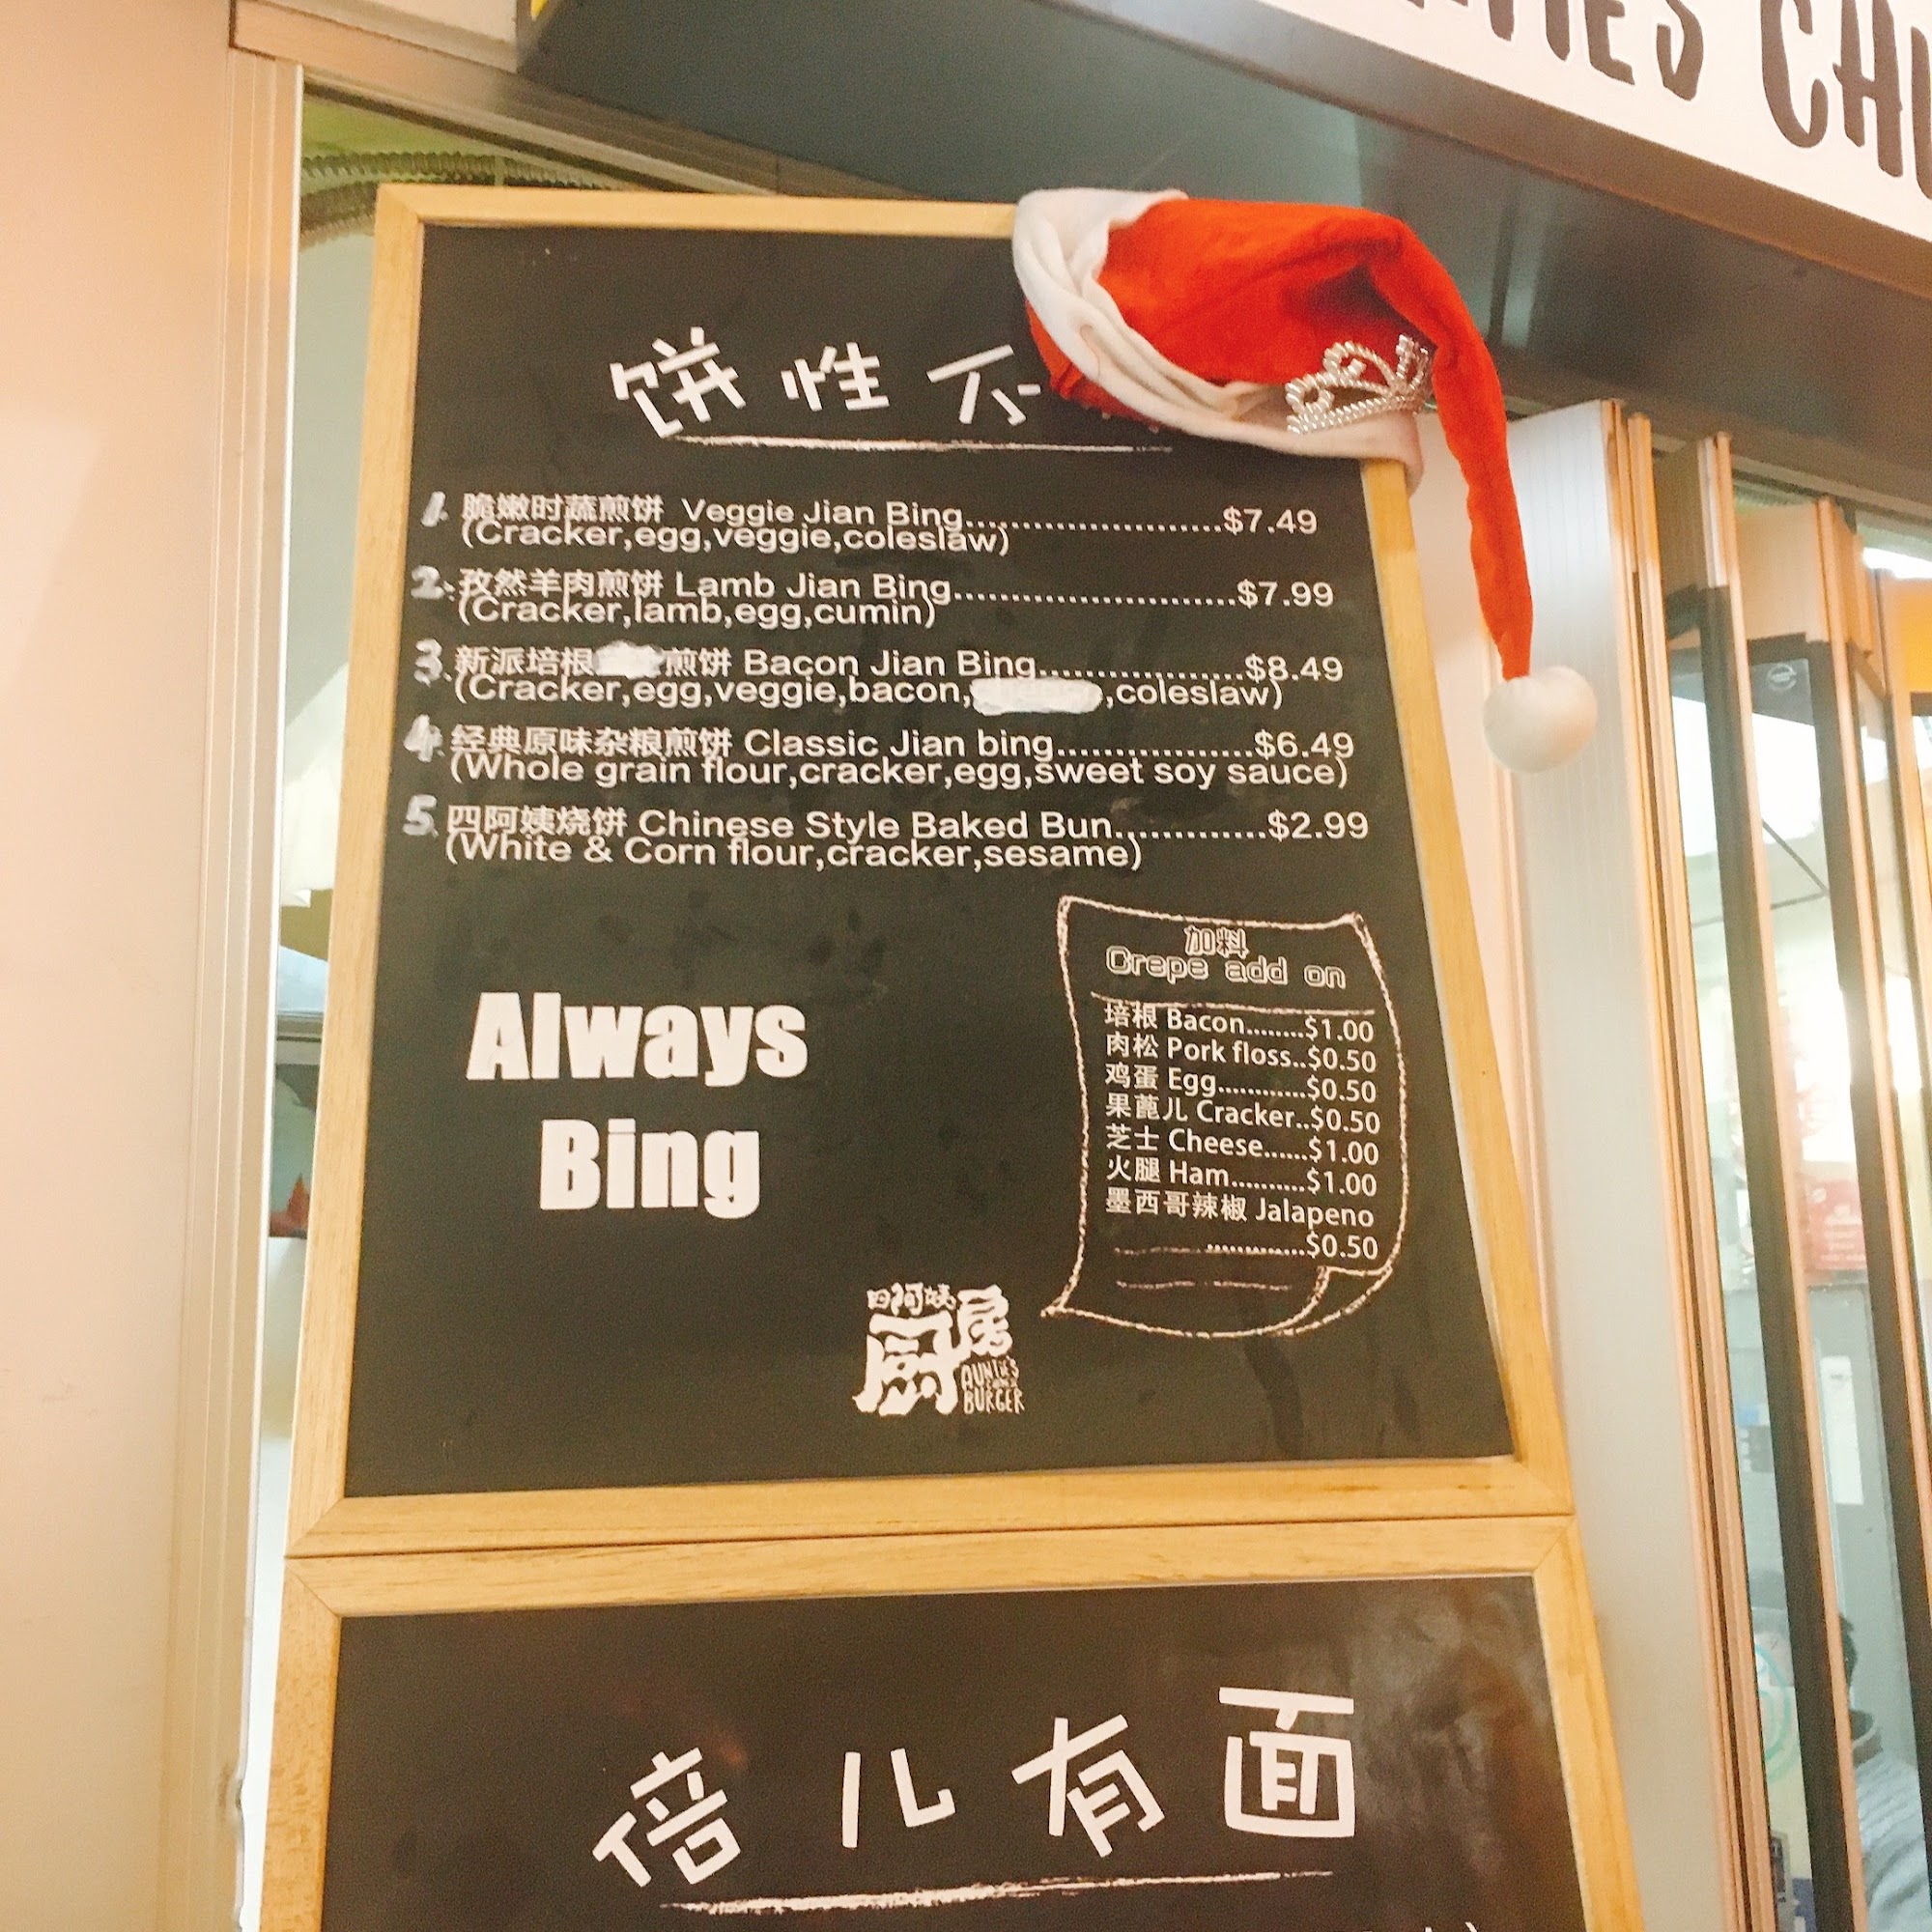 CHU
饼性不
1. 脆嫩时蔬煎饼 Veggie Jian Bing..........................$7.49
(Cracker,egg,veggie,coleslaw)
2. 孜然羊肉煎饼 Lamb Jian Bing............................$7.99
(Cracker,lamb,egg,cumin)
3. 新派培根 煎饼 Bacon Jian Bing....................$8.49
(Cracker,egg,veggie,bacon, ,coleslaw)
4. 经典原味杂粮煎饼 Classic Jian bing...................$6.49
(Whole grain flour,cracker,egg,sweet soy sauce)
5. 四阿姨烧饼 Chinese Style Baked Bun...............$2.99
(White & Corn flour,cracker,sesame)
Always
Bing
加料
Crepe add on
培根 Bacon........$1.00
肉松 Pork floss..$0.50
鸡蛋 Egg............$0.50
果蓖儿 Cracker..$0.50
芝士 Cheese......$1.00
火腿 Ham..........$1.00
墨西哥辣椒 Jalapeno
.............$0.50
四阿姨
厨房
AUNTIE'S
BURGER
倍儿有面